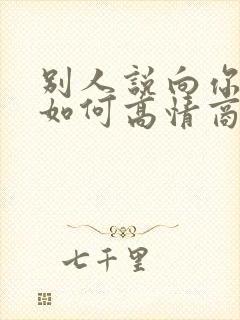 别人說向你
如何高情商
七千里